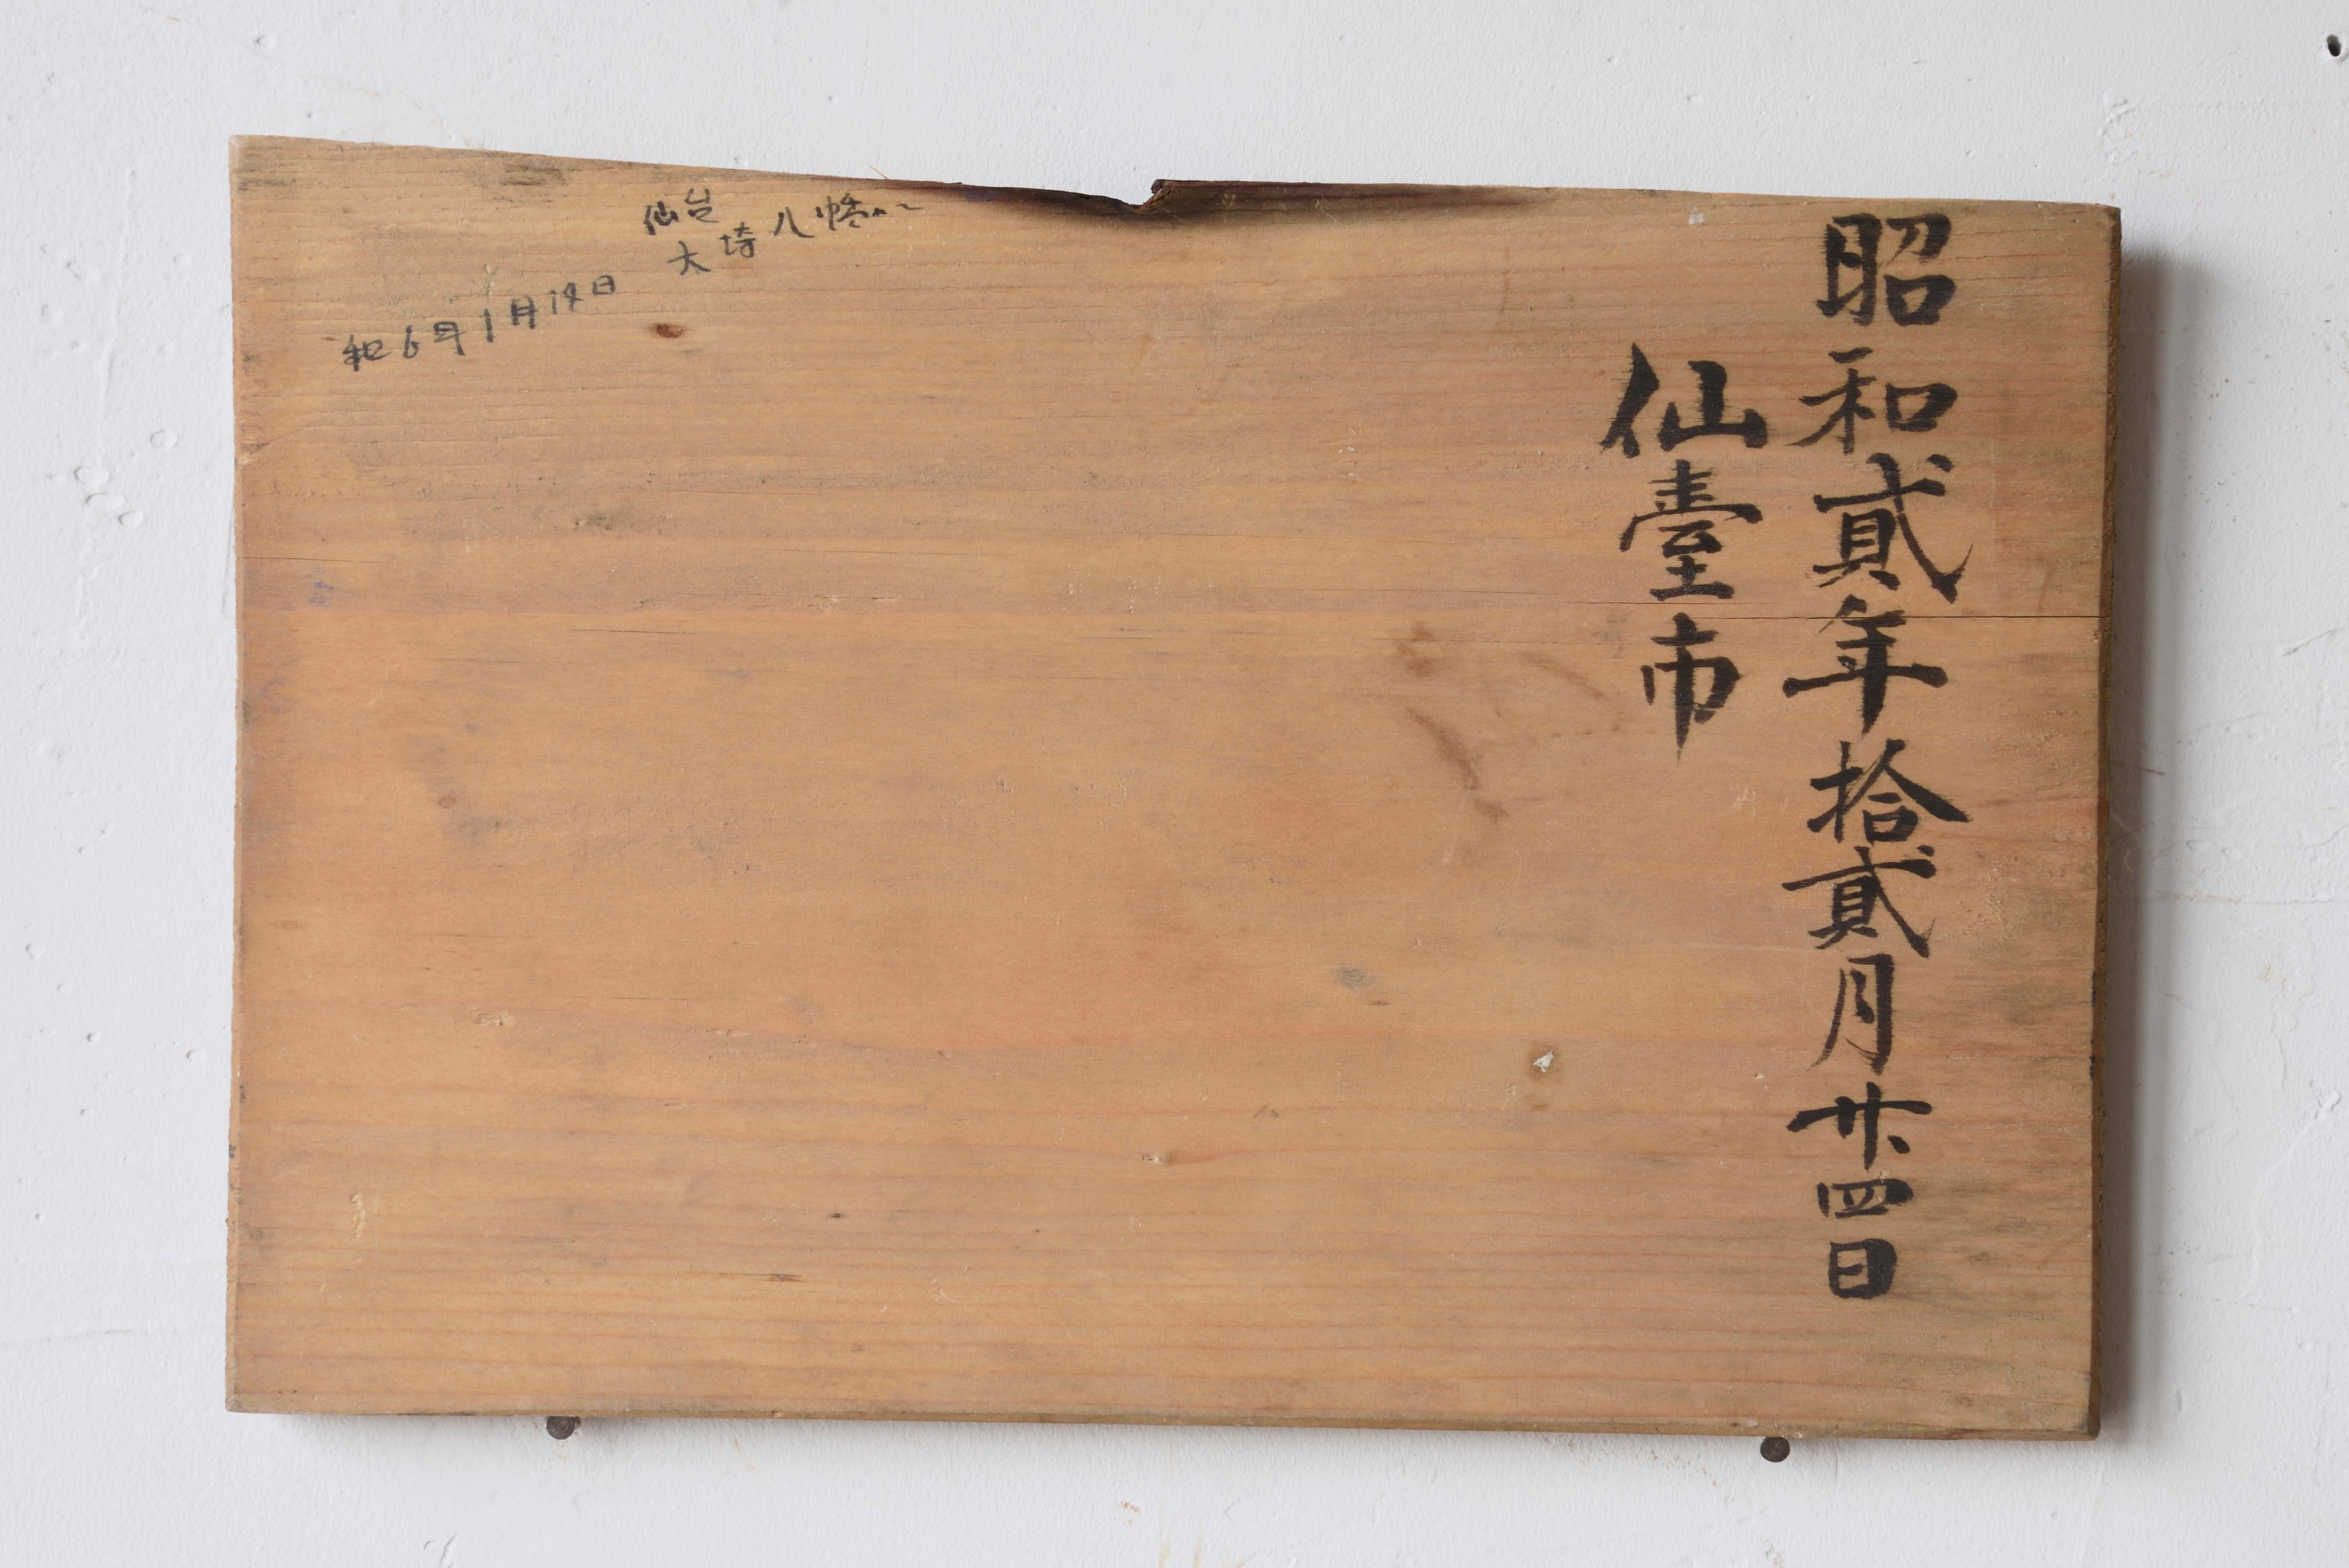 昭和貳年拾貳月廿四日
仙臺市
仙台
大埼八幡へ
和6年1月14日